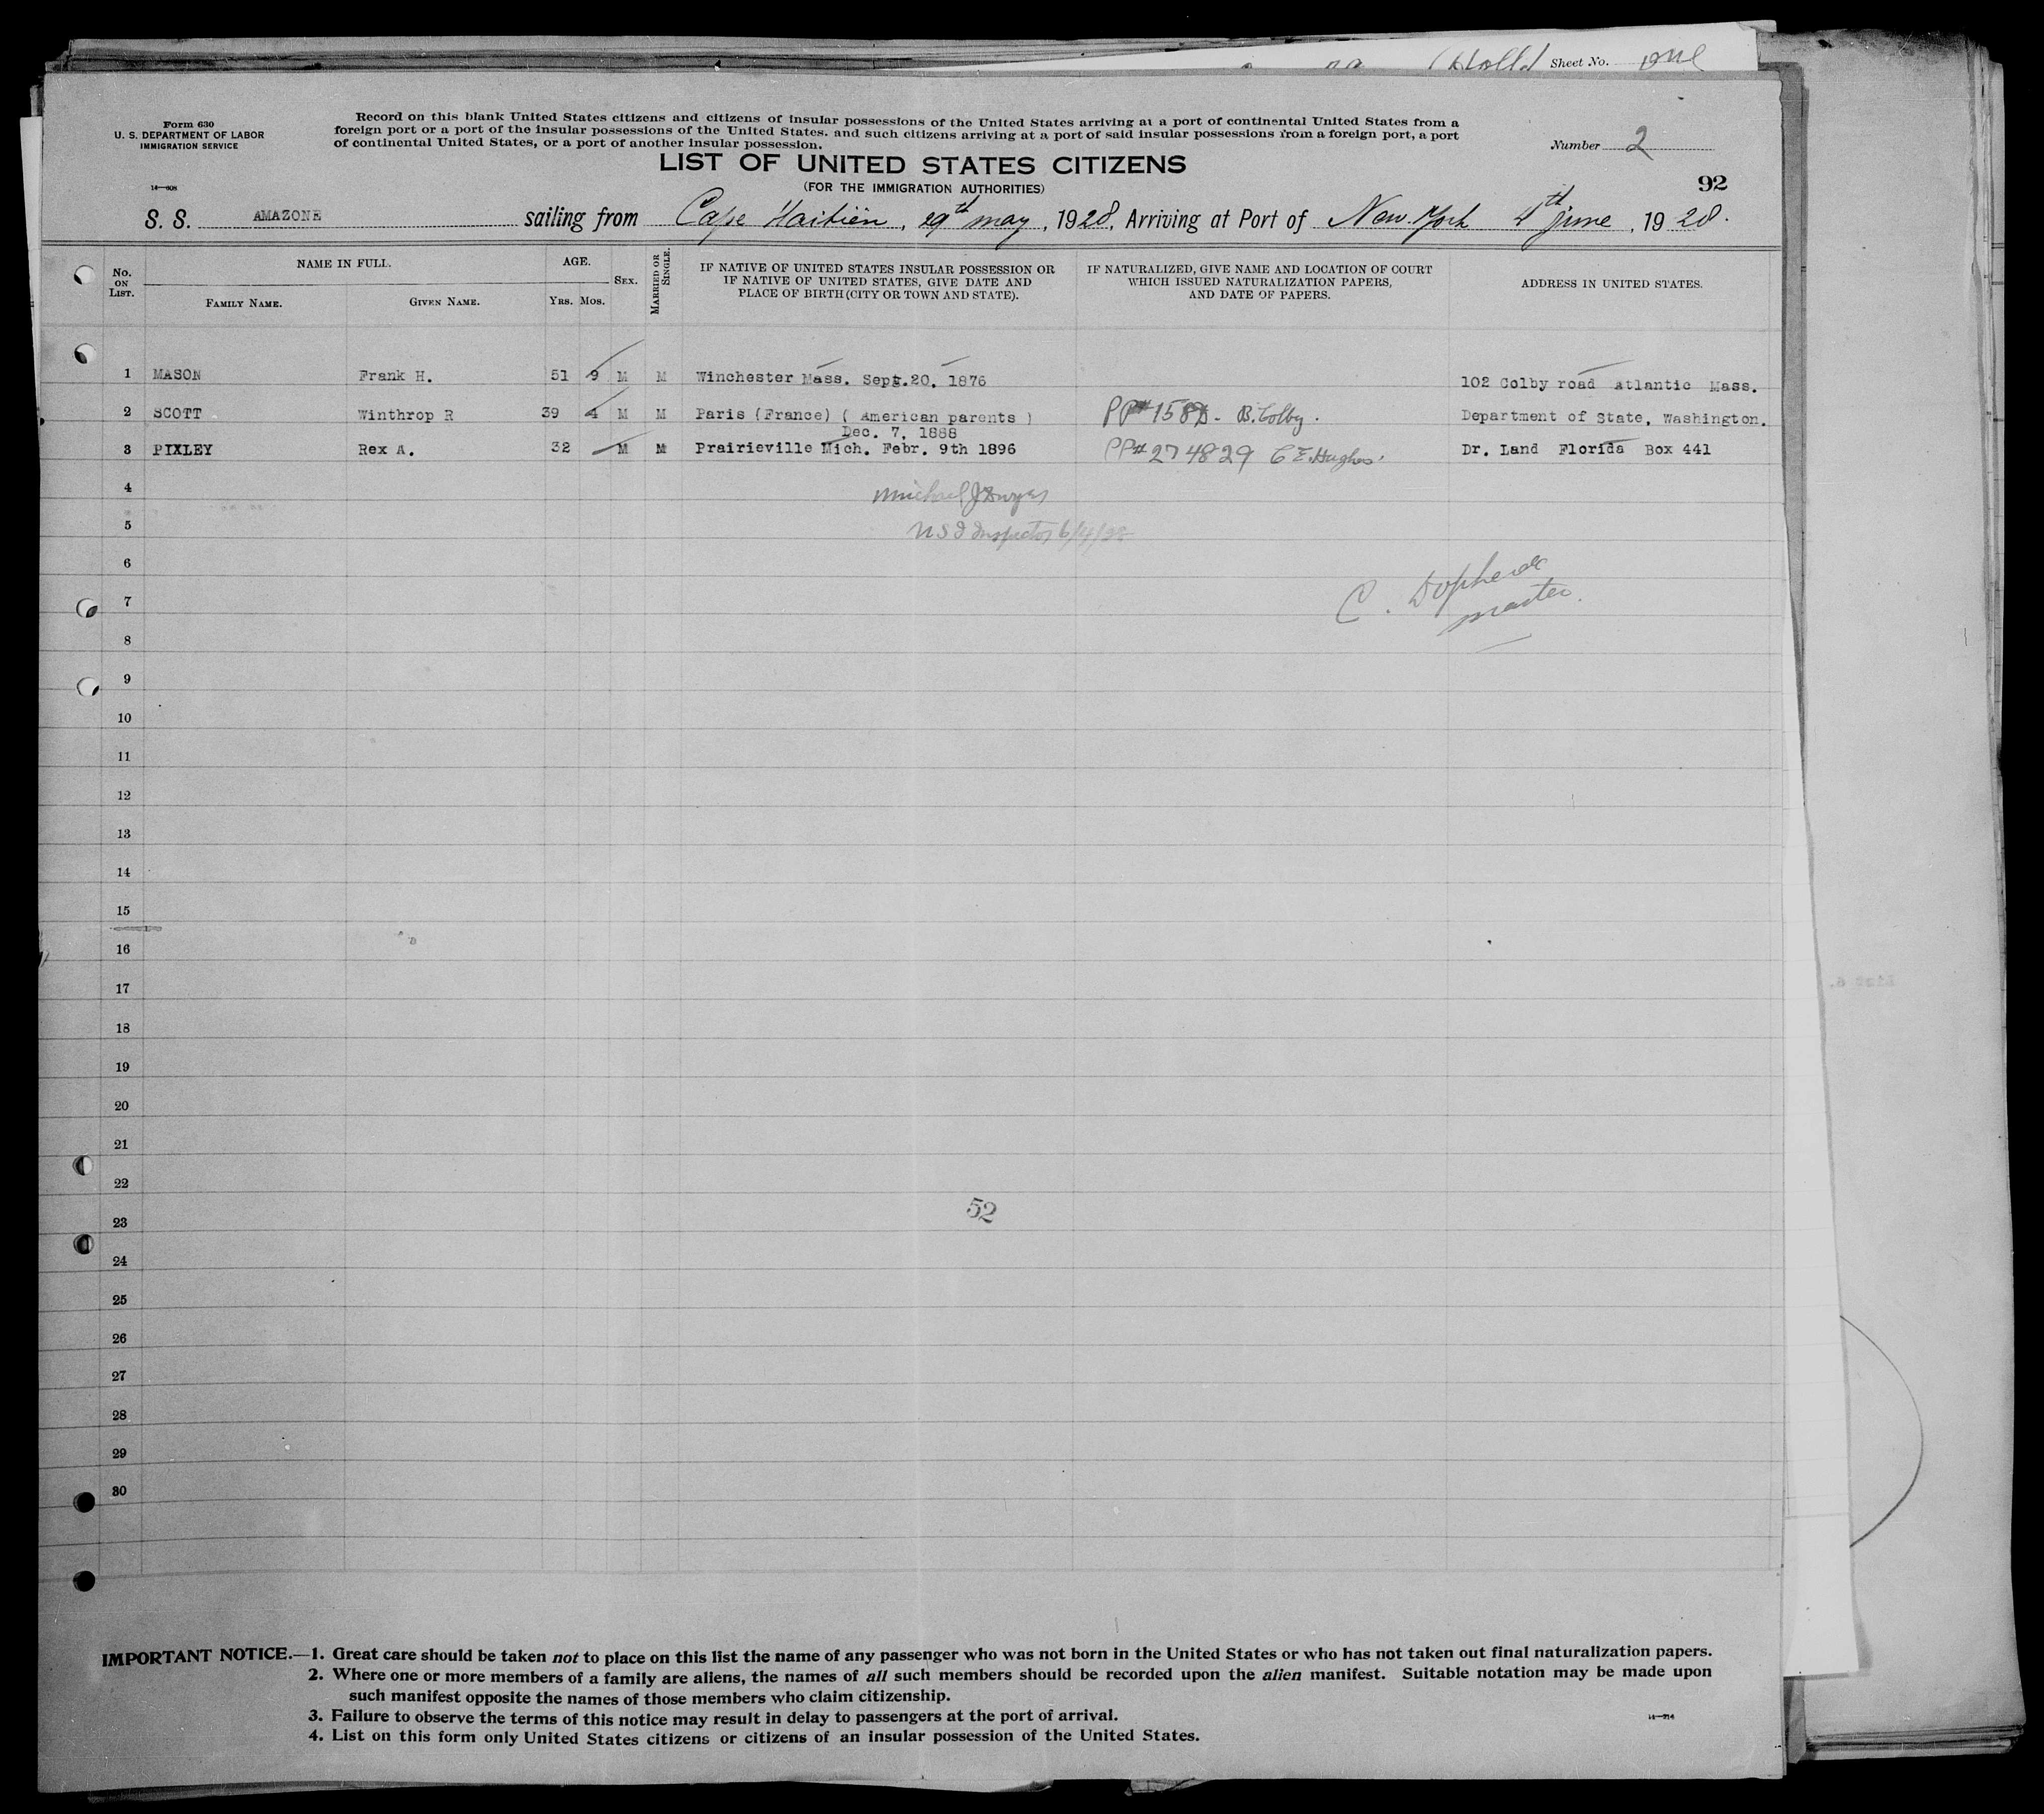 Sheet No. one
Form 630
U. S. DEPARTMENT OF LABOR
IMMIGRATION SERVICE
14—608
Record on this blank United States citizens and citizens of insular possessions of the United States arriving at a port of continental United States from a
foreign port or a port of the insular possessions of the United States. and such citizens arriving at a port of said insular possessions from a foreign port, a port
of continental United States, or a port of another insular possession.
Number 2
LIST OF UNITED STATES CITIZENS
(FOR THE IMMIGRATION AUTHORITIES)
92
S. S. AMAZONE sailing from Cape Haitiën, 29th may, 1928, Arriving at Port of New-York 4th june, 1928.
No. ON LIST. NAME IN FULL. FAMILY NAME. GIVEN NAME. AGE. YRS. MOS. SEX. MARRIED OR SINGLE. IF NATIVE OF UNITED STATES INSULAR POSSESSION OR IF NATIVE OF UNITED STATES, GIVE DATE AND PLACE OF BIRTH (CITY OR TOWN AND STATE). IF NATURALIZED, GIVE NAME AND LOCATION OF COURT WHICH ISSUED NATURALIZATION PAPERS, AND DATE OF PAPERS. ADDRESS IN UNITED STATES.
1 MASON Frank H. 51 9 M M Winchester Mass. Sept.20, 1876 102 Colby road Atlantic Mass.
2 SCOTT Winthrop R 39 4 M M Paris (France) ( American parents ) PP# B. Colby. Department of State, Washington.
Dec. 7, 1888
3 PIXLEY Rex A. 32 M M Prairieville Mich. Febr. 9th 1896 PP# 274829 C E. Hughes. Dr. Land Florida Box 441
4 Michael J
5 U S I Inspector 6/4/28
6
7 C.
master.
8
9
10
11
12
13
14
15
16
17
18
19
20
21
22
52
23
24
25
26
27
28
29
30
IMPORTANT NOTICE.—1. Great care should be taken not to place on this list the name of any passenger who was not born in the United States or who has not taken out final naturalization papers.
2. Where one or more members of a family are aliens, the names of all such members should be recorded upon the alien manifest. Suitable notation may be made upon
such manifest opposite the names of those members who claim citizenship.
3. Failure to observe the terms of this notice may result in delay to passengers at the port of arrival.
4. List on this form only United States citizens or citizens of an insular possession of the United States.
14—714